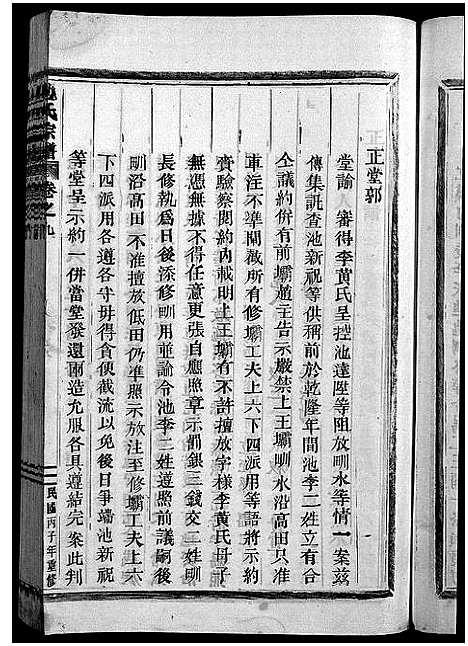 正堂郭
堂諭　審得李黃氏呈控池達陞等阻放甽水等情一案茲
傳集訊查池新祝等供稱前於乾隆年間池李二姓立有合
仝議約併有前壩趙主告示嚴禁上王壩甽水沿高田只准
車注不準開缺所有修壩工夫上六下四派用等語將示約
賫驗察閱約內載明上王壩有不許擅放字樣李黃氏母子
無憑無據不得任意更張自應照章示罰銀三錢交二姓甽
長修執爲日後添修甽用並諭令池李二姓遵照前議嗣後
甽沿高田不准擅放低田仍准照示放注至修壩工夫上六
下四派用各遵各守毋得食便截流以免後日爭端池新祝
等堂呈示約一併當堂發還兩造允服各具遵結完案此判
氏宗譜
卷之九
民國丙子年重修